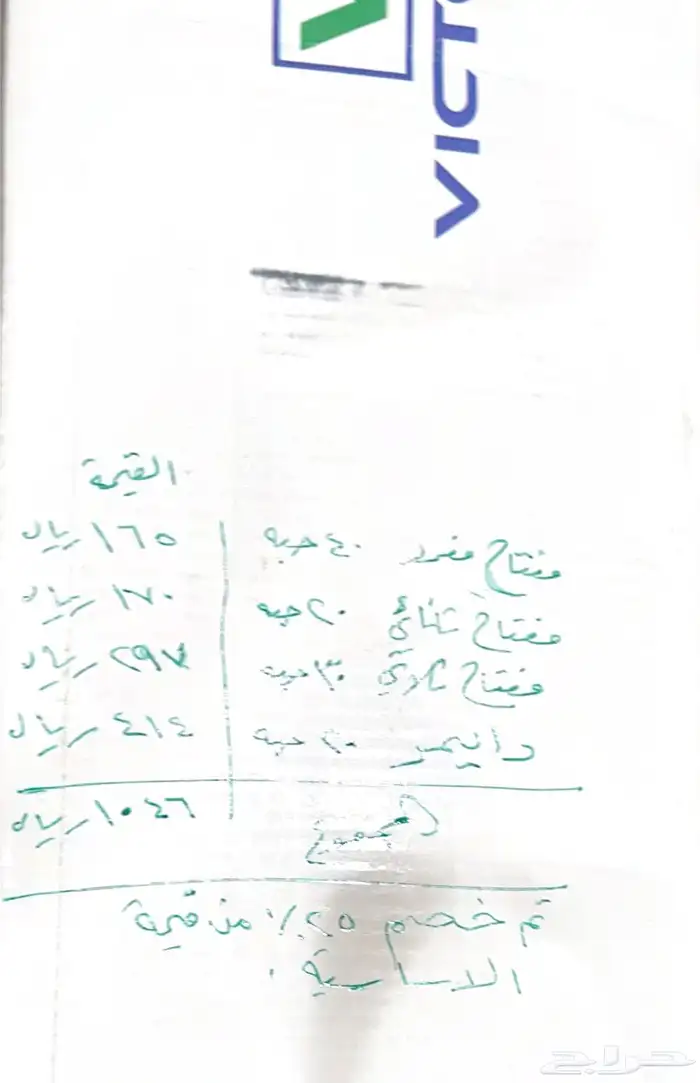 VICTO
القيمة
مفتاح مفرد ٤٠ حبه ١٦٥ ريال
مفتاح ثنائي ٢٠ حبه ١٧٠ ريال
مفتاح ثلاثي ٣٠ حبه ٢٩٧ ريال
دايمر ٢٠ حبه ٤١٤ ريال
المجموع ١٠٤٦ ريال
تم خصم ٢٥٪ من قيمة
الاساسية .
حراج